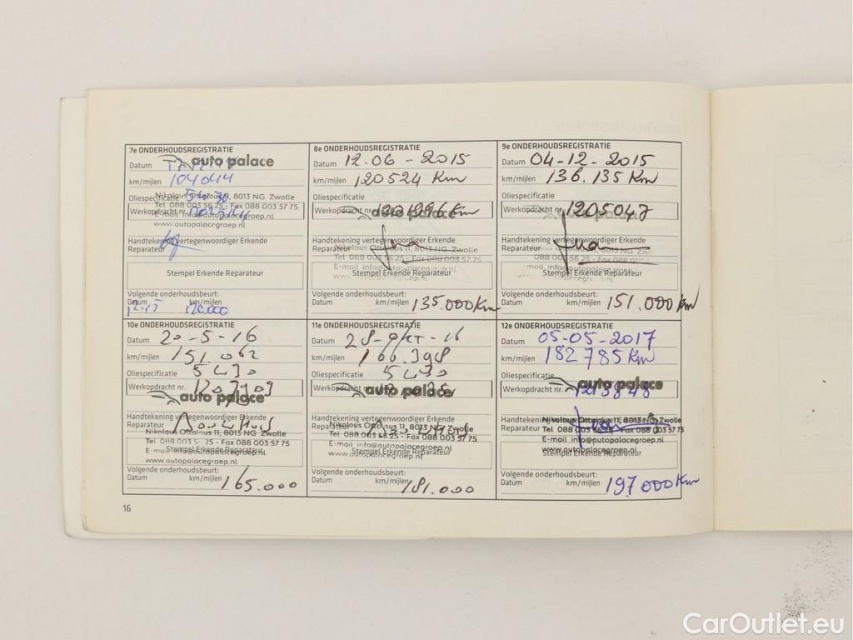 7e ONDERHOUDSREGISTRATIE
Datum
auto palace
km/mijlen 104044
Oliespecificatie 5W30
Nikolaus Ottolaus 11, 8013 NG Zwolle
Tel 088 003 56 25 - Fax 088 003 57 75
Werkopdracht nr.
www.autopalacegroep.nl
Handtekening vertegenwoordiger Erkende
Reparateur
Stempel Erkende Reparateur
Volgende onderhoudsbeurt:
Datum km/mijlen 120.000
8e ONDERHOUDSREGISTRATIE
Datum 12-06-2015
km/mijlen 120524 Km
Oliespecificatie
Werkopdracht nr.
auto palace
Handtekening vertegenwoordiger Erkende
Reparateur
Nikolous Ottostraat 11, 8013 NG Zwolle
Tel 088 003 56 25 - Fax 088 003 57 75
E-mail info@autopalacegroep.nl
Stempel Erkende Reparateur
Volgende onderhoudsbeurt:
Datum km/mijlen 135.000 Km
9e ONDERHOUDSREGISTRATIE
Datum 04-12-2015
km/mijlen 136.135 Km
Oliespecificatie
Werkopdracht nr. 1205047
Handtekening vertegenwoordiger Erkende
Reparateur
Stempel Erkende Reparateur
Volgende onderhoudsbeurt:
Datum km/mijlen 151.000 Km
10e ONDERHOUDSREGISTRATIE
Datum 20-5-16
km/mijlen 151.062
Oliespecificatie 5W30
Werkopdracht nr. 1207903
auto palace
Handtekening vertegenwoordiger Erkende
Reparateur
Tel 088 003 56 25 - Fax 088 003 57 75
E-mail info@autopalacegroep.nl
Stempel Erkende Reparateur
www.autopalacegroep.nl
Volgende onderhoudsbeurt:
Datum km/mijlen 165.000
11e ONDERHOUDSREGISTRATIE
Datum 28-OKT-16
km/mijlen 166.398
Oliespecificatie 5W30
Werkopdracht nr.
auto palace
Handtekening vertegenwoordiger Erkende
Reparateur
Tel 088 003 56 25 - Fax 088 003 57 75
E-mail info@autopalacegroep.nl
Stempel Erkende Reparateur
www.autopalacegroep.nl
Volgende onderhoudsbeurt:
Datum km/mijlen 181.000
12e ONDERHOUDSREGISTRATIE
Datum 05-05-2017
km/mijlen 182785 Km
Oliespecificatie
auto palace
Werkopdracht nr. 1213848
Handtekening vertegenwoordiger Erkende
Reparateur
E-mail info@autopalacegroep.nl
Stempel Erkende Reparateur
www.autopalacegroep.nl
Volgende onderhoudsbeurt:
Datum km/mijlen 197.000 Km
16
CarOutlet.eu